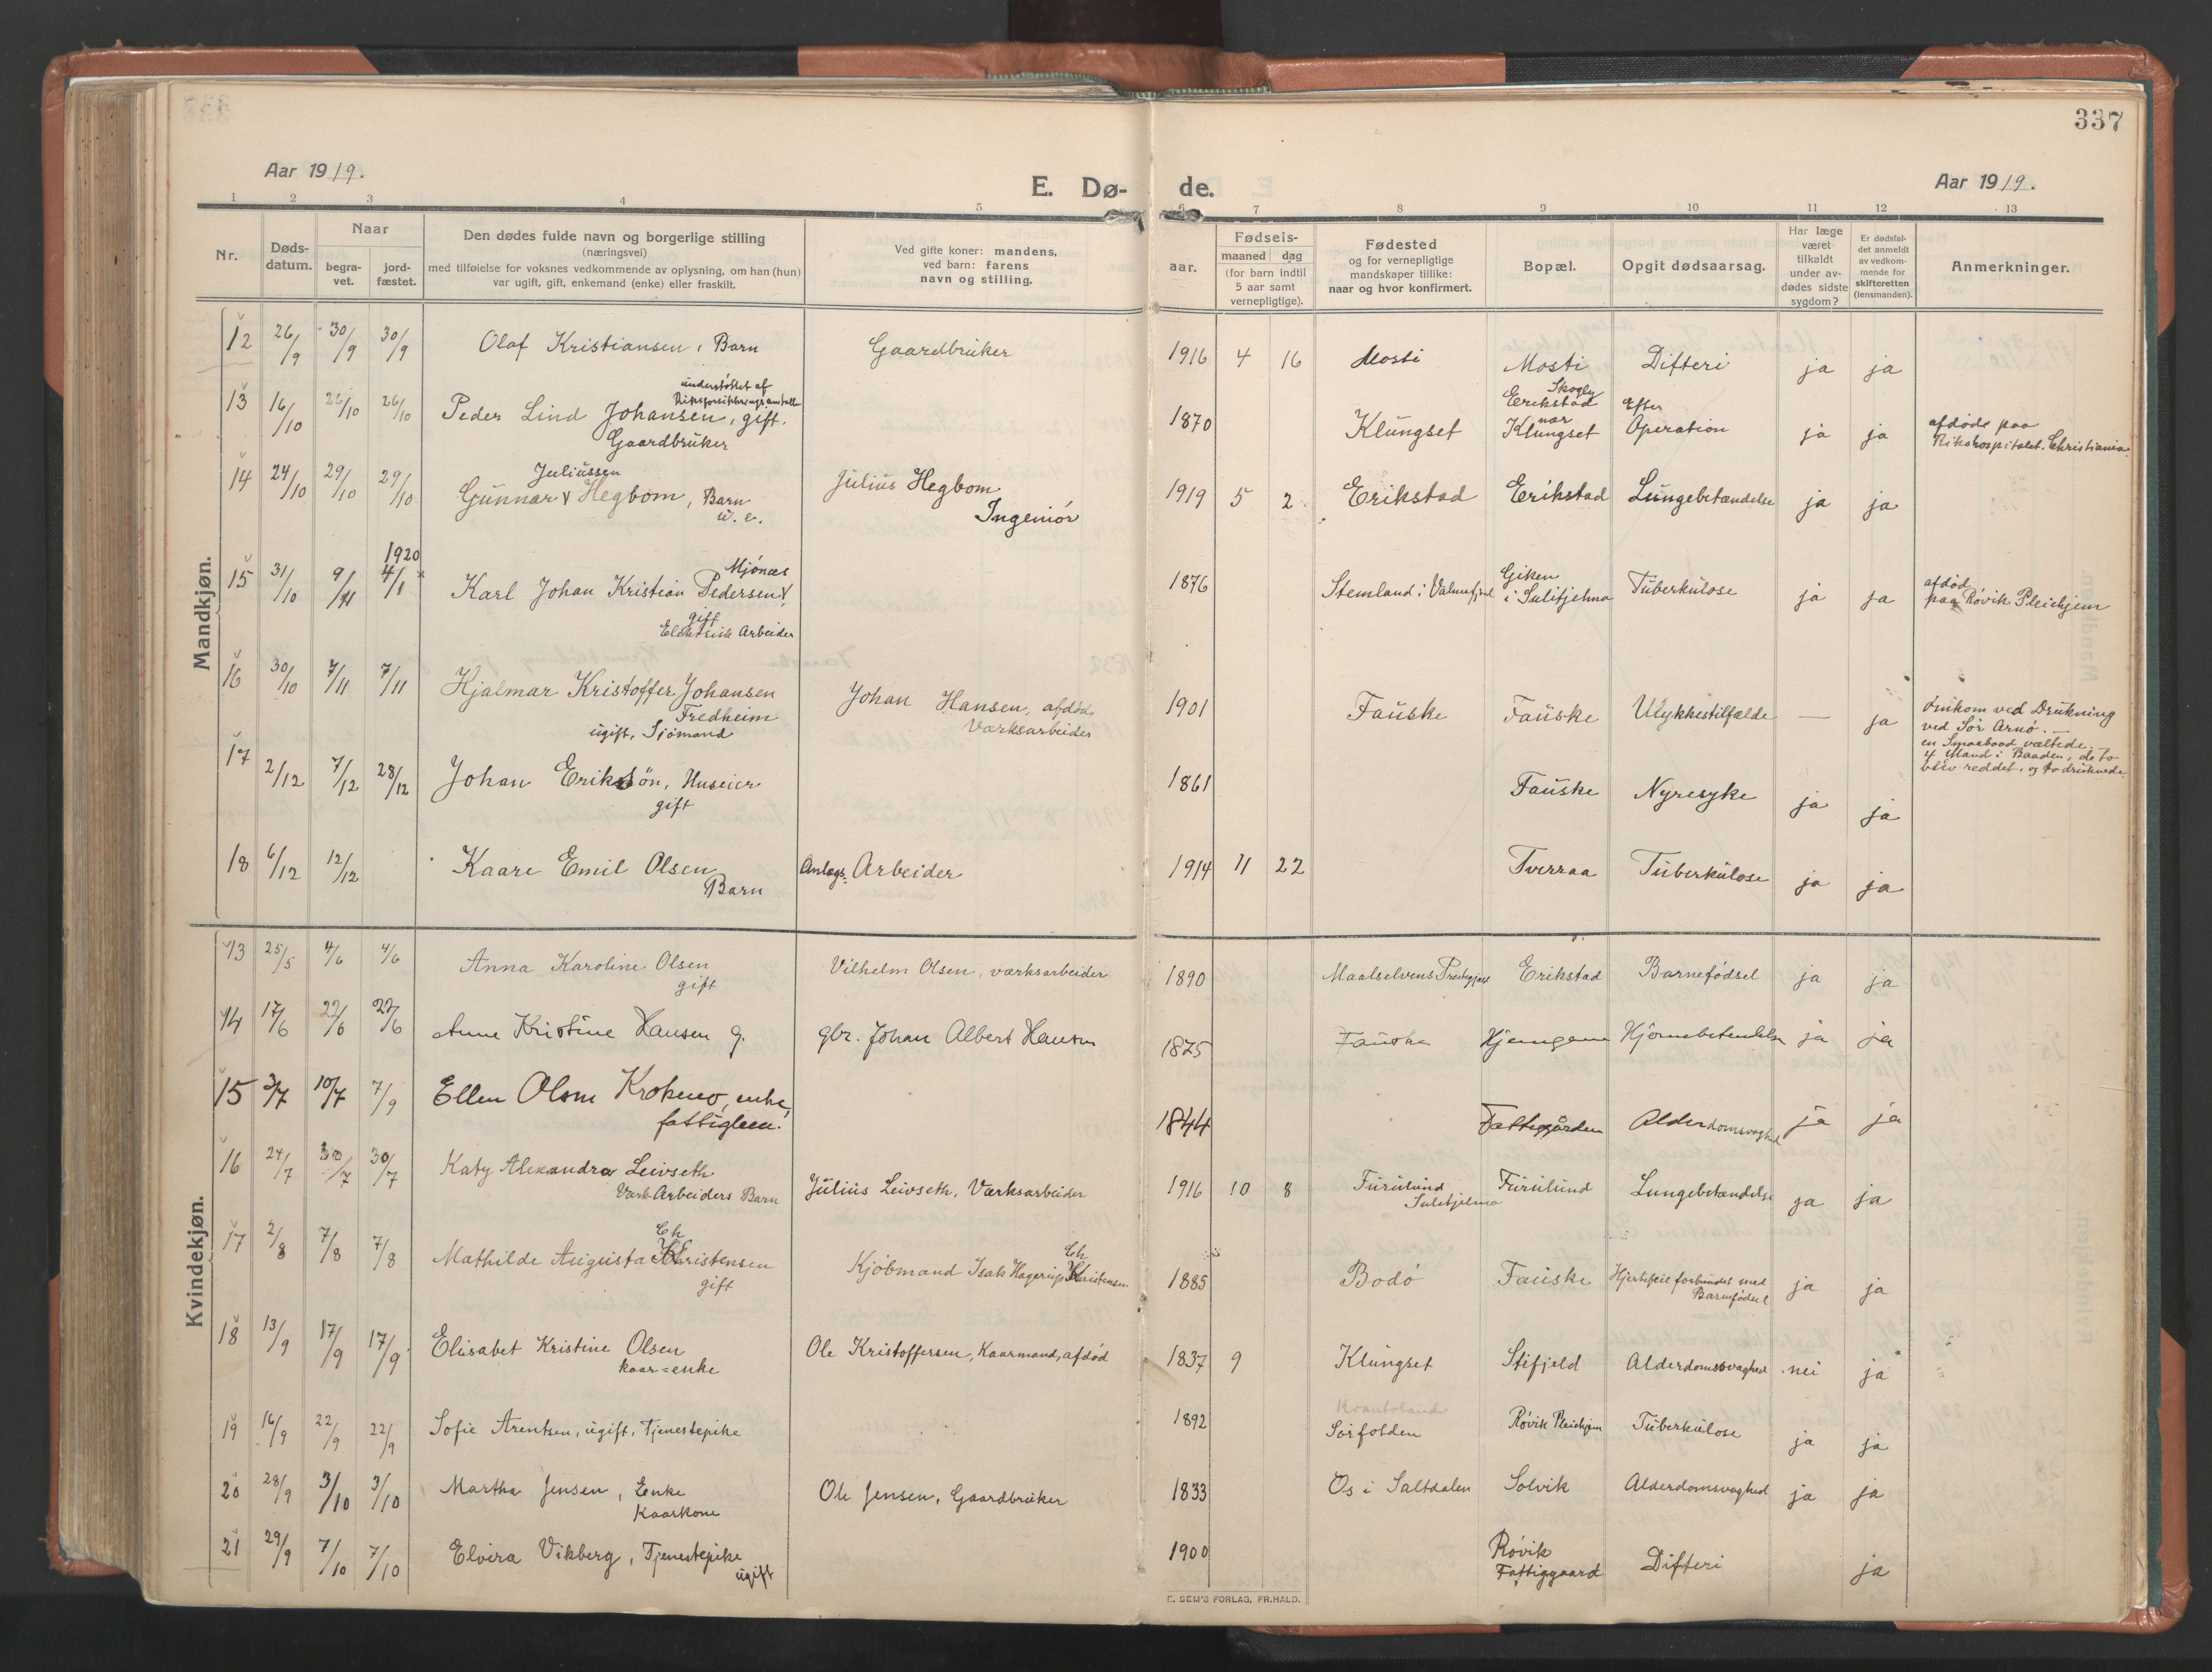 337
Aar 1919.
E. Dø- de.
Aar 1919.
1 2 3 4 5 6 7 8 9 10 11 12 13
Nr.
Døds-
datum.
Naar
begra-
vet.
jord-
fæstet.
Den dødes fulde navn og borgerlige stilling
(næringsvei)
med tilføielse for voksnes vedkommende av oplysning, om han (hun)
var ugift, gift, enkemand (enke) eller fraskilt.
Ved gifte koner: mandens,
ved barn: farens
navn og stilling.
Fødsels-
aar.
maaned dag
(for barn indtil
5 aar samt
vernepligtige).
Fødested
og for vernepligtige
mandskaper tillike:
naar og hvor konfirmert.
Bopæl.
Opgit dødsaarsag.
Har læge
været
tilkaldt
under av-
dødes sidste
sygdom?
Er dødsfal-
det anmeldt
av vedkom-
mende for
skifteretten
(lensmanden).
Anmerkninger.
Mandkjøn.
12 26/9 30/9 30/9 Olaf Kristiansen, Barn Gaardbruker 1916 4 16 Mosti Mosti Difteri ja ja
understøttet af
Riksforsikringsanstalt
13 16/10 26/10 26/10 Peder Lind Johansen, gift.
Gaardbruker
1870 Klungset
Skogly
Erikstad
nær
Klungset
Efter
Operation
ja ja
afdøde paa
Rikshospitalet. Christiania.
Juliussen
14 24/10 29/10 29/10 Gunnar Hegbom, Barn
u. e.
Julius Hegbom
Ingeniør
1919 5 2 Erikstad Erikstad Lungebetændelse ja ja
1920
Mjønæs
15 31/10 9/11 4/1 Karl Johan Kristian Pedersen
gift
Elektrisk Arbeider
1876 Stemland i Valnesfjord
Giken
i Sulitjelma
Tuberkulose ja ja
afdød
paa Røvik Pleiehjem
16 30/10 7/11 7/11 Hjalmar Kristoffer Johansen
Fredheim
ugift, Sjømand
Johan Hansen, afdød,
Værksarbeider
1901 Fauske Fauske Ulykkestilfælde — ja
Omkom ved Drukning
ved Sør Arnø. —
en Smaabaad væltede.
4 Mand i Baaden, de to
blev reddet, og to druknede.
17 2/12 7/12 28/12 Johan Eriksön, Huseier
gift
1861 Fauske Nyresyke ja ja
18 6/12 12/12 Kaare Emil Olsen
Barn
Anlægs. Arbeider 1914 11 22 Tverraa Tuberkulose ja ja
Kvindekjøn.
13 25/5 4/6 4/6 Anna Karoline Olsen
gift
Vilhelm Olsen, værksarbeider 1890 Maalselvens Prestegjæld Erikstad Barnefødsel ja ja
14 17/6 22/6 22/6 Anne Kristine Hansen g. gbr. Johan Albert Hansen 1875 Fauske Hjemgam Hjernebetendelse ja ja
15 3/7 10/7 7/9 Ellen Olsen Krokmo, enke,
fattiglem.
1844 Fattiggården Alderdomsvaghed ja ja
16 24/7 30/7 30/7 Katy Alexandra Leivseth
Værk-Arbeiders Barn
Julius Leivseth, Værksarbeider 1916 10 8 Furulund
Sulitjelma
Furulund Lungebetændelse ja ja
Ch
17 2/8 7/8 7/8 Mathilde Augusta Christensen
gift
Ch
Kjøbmand Isak Hagerup Kristensen 1885 Bodø Fauske Hjertefeil forbundet med
Barnefødsel
ja ja
18 13/9 17/9 17/9 Elisabet Kristine Olsen
kaar=enke
Ole Kristoffersen, Kaarmand, afdød 1837 9 Klungset Stifjeld Alderdomssvaghed nei ja
19 16/9 22/9 22/9 Sofie Arentsen, ugift, Tjenestepike 1892 Sørfolden Røvik Pleiehjem Tuberkulose ja ja
20 28/9 3/10 3/10 Martha Jensen, Enke
Kaarkone
Ole Jensen, Gaardbruker 1833 Os i Saltdalen Solvik Alderdomsvaghed ja ja
21 29/9 7/10 7/10 Elvira Vikberg, Tjenestepike
ugift
1900 Røvik
Fattiggaard
Difteri ja
E. SEM'S FORLAG, FR.HALD.